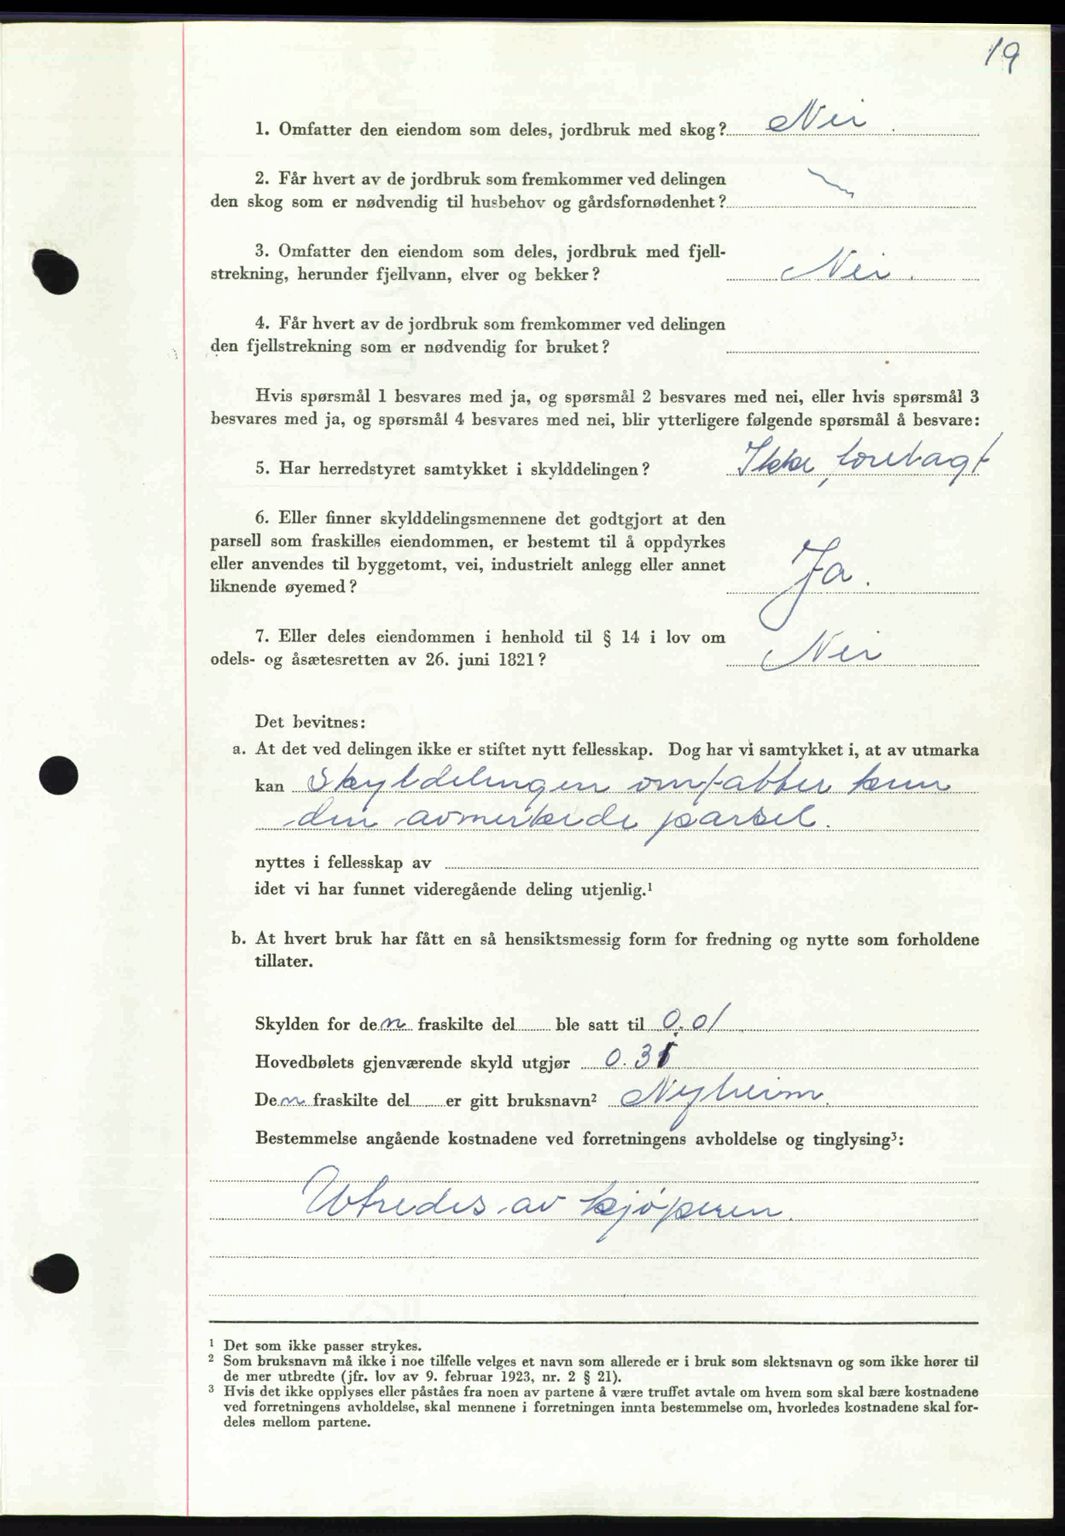 19
1. Omfatter den eiendom som deles, jordbruk med skog? Nei.
2. Får hvert av de jordbruk som fremkommer ved delingen
den skog som er nødvendig til husbehov og gårdsfornødenhet?
3. Omfatter den eiendom som deles, jordbruk med fjell-
strekning, herunder fjellvann, elver og bekker? Nei.
4. Får hvert av de jordbruk som fremkommer ved delingen
den fjellstrekning som er nødvendig for bruket?
Hvis spørsmål 1 besvares med ja, og spørsmål 2 besvares med nei, eller hvis spørsmål 3
besvares med ja, og spørsmål 4 besvares med nei, blir ytterligere følgende spørsmål å besvare:
5. Har herredstyret samtykket i skylddelingen? Ikke foretagt
6. Eller finner skylddelingsmennene det godtgjort at den
parsell som fraskilles eiendommen, er bestemt til å oppdyrkes
eller anvendes til byggetomt, vei, industrielt anlegg eller annet
liknende øyemed? Ja.
7. Eller deles eiendommen i henhold til § 14 i lov om
odels- og åsætesretten av 26. juni 1821? Nei
Det bevitnes:
a. At det ved delingen ikke er stiftet nytt fellesskap. Dog har vi samtykket i, at av utmarka
kan Skyldelingen omfatter kun
den avmerkede parsel.
nyttes i fellesskap av
idet vi har funnet videregående deling utjenlig.¹
b. At hvert bruk har fått en så hensiktsmessig form for fredning og nytte som forholdene
tillater.
Skylden for den fraskilte del ble satt til 0.01
Hovedbølets gjenværende skyld utgjør 0.3
Den fraskilte del er gitt bruksnavn² Nyheim.
Bestemmelse angående kostnadene ved forretningens avholdelse og tinglysing³:
Utredes av kjöperen.
¹ Det som ikke passer strykes.
² Som bruksnavn må ikke i noe tilfelle velges et navn som allerede er i bruk som slektsnavn og som ikke hører til
de mer utbredte (jfr. lov av 9. februar 1923, nr. 2 § 21).
³ Hvis det ikke opplyses eller påståes fra noen av partene å være truffet avtale om hvem som skal bære kostnadene
ved forretningens avholdelse, skal mennene i forretningen innta bestemmelse om, hvorledes kostnadene skal for-
deles mellom partene.